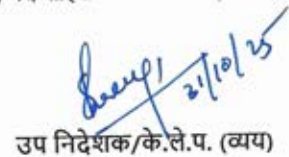 21/10/25
उप निदेशक/के.ले.प. (व्यय)